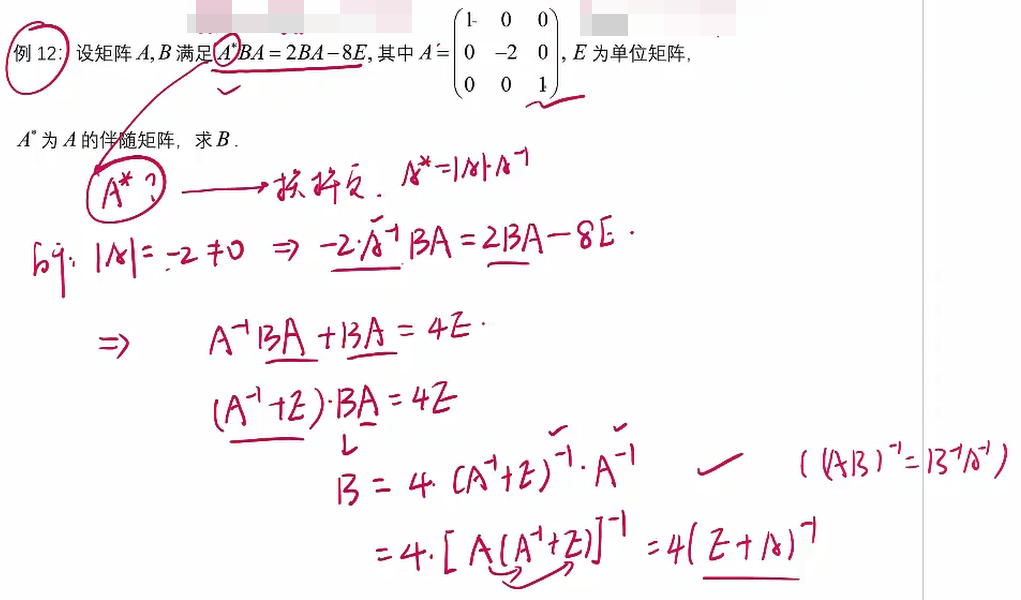 例 12：设矩阵 A, B 满足 A*BA = 2BA − 8E, 其中 A = (1 0 0
0 −2 0
0 0 1), E 为单位矩阵,
A* 为 A 的伴随矩阵，求 B .
A* ? → 换掉它. A* = |A|·A⁻¹
|A| = -2 ≠ 0 ⇒ -2·A⁻¹ BA = 2BA − 8E .
⇒ A⁻¹BA + BA = 4E .
(A⁻¹+E)·BA = 4E
B = 4·(A⁻¹+E)⁻¹·A⁻¹ ✓ ((AB)⁻¹ = B⁻¹A⁻¹)
= 4·[A(A⁻¹+E)]⁻¹ = 4(E+A)⁻¹